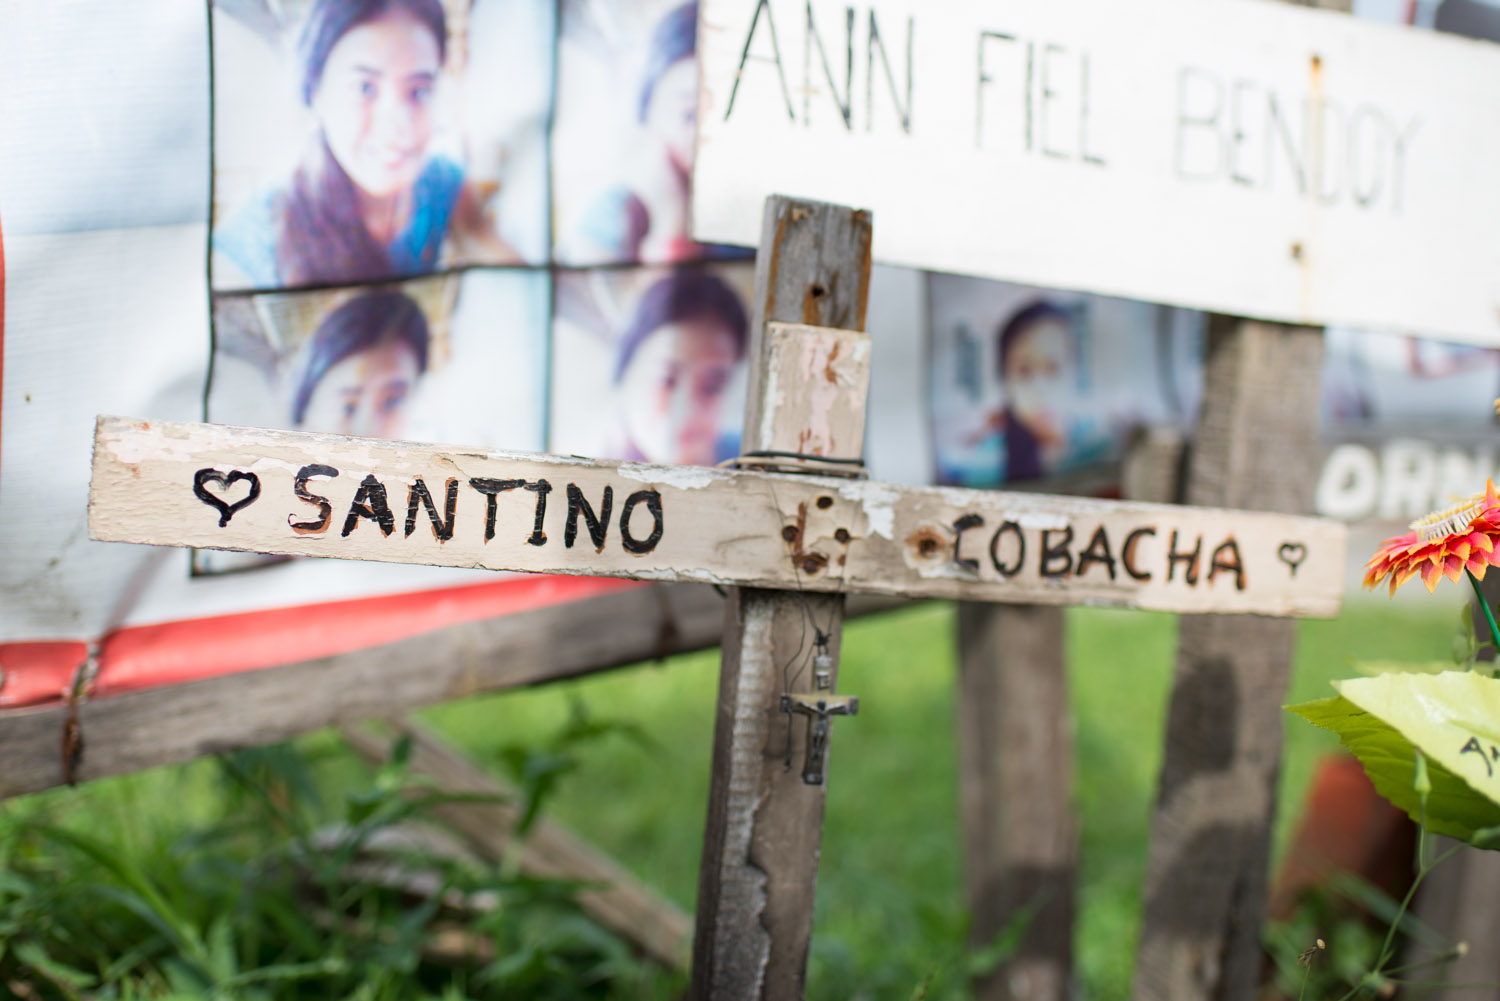 ANN FIEL BENDOY
♡ SANTINO COBACHA ♡